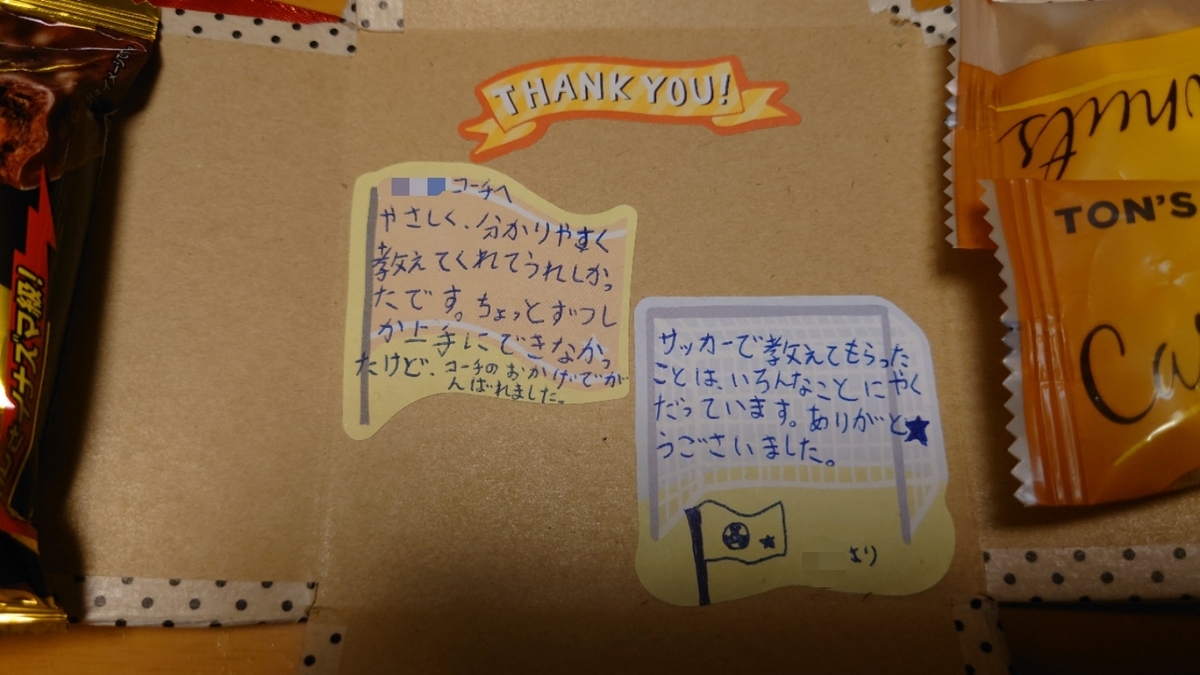 THANK YOU!
コーチへ
やさしく、分かりやすく
教えてくれてうれしかっ
たです。ちょっとずつし
か上手にできなかっ
たけど、コーチのおかげでが
んばれました。
サッカーで教えてもらった
ことは、いろんなことにやく
だっています。ありがと
うごさいました。
より
nuts
TON'S
Ca
イナズマ級!